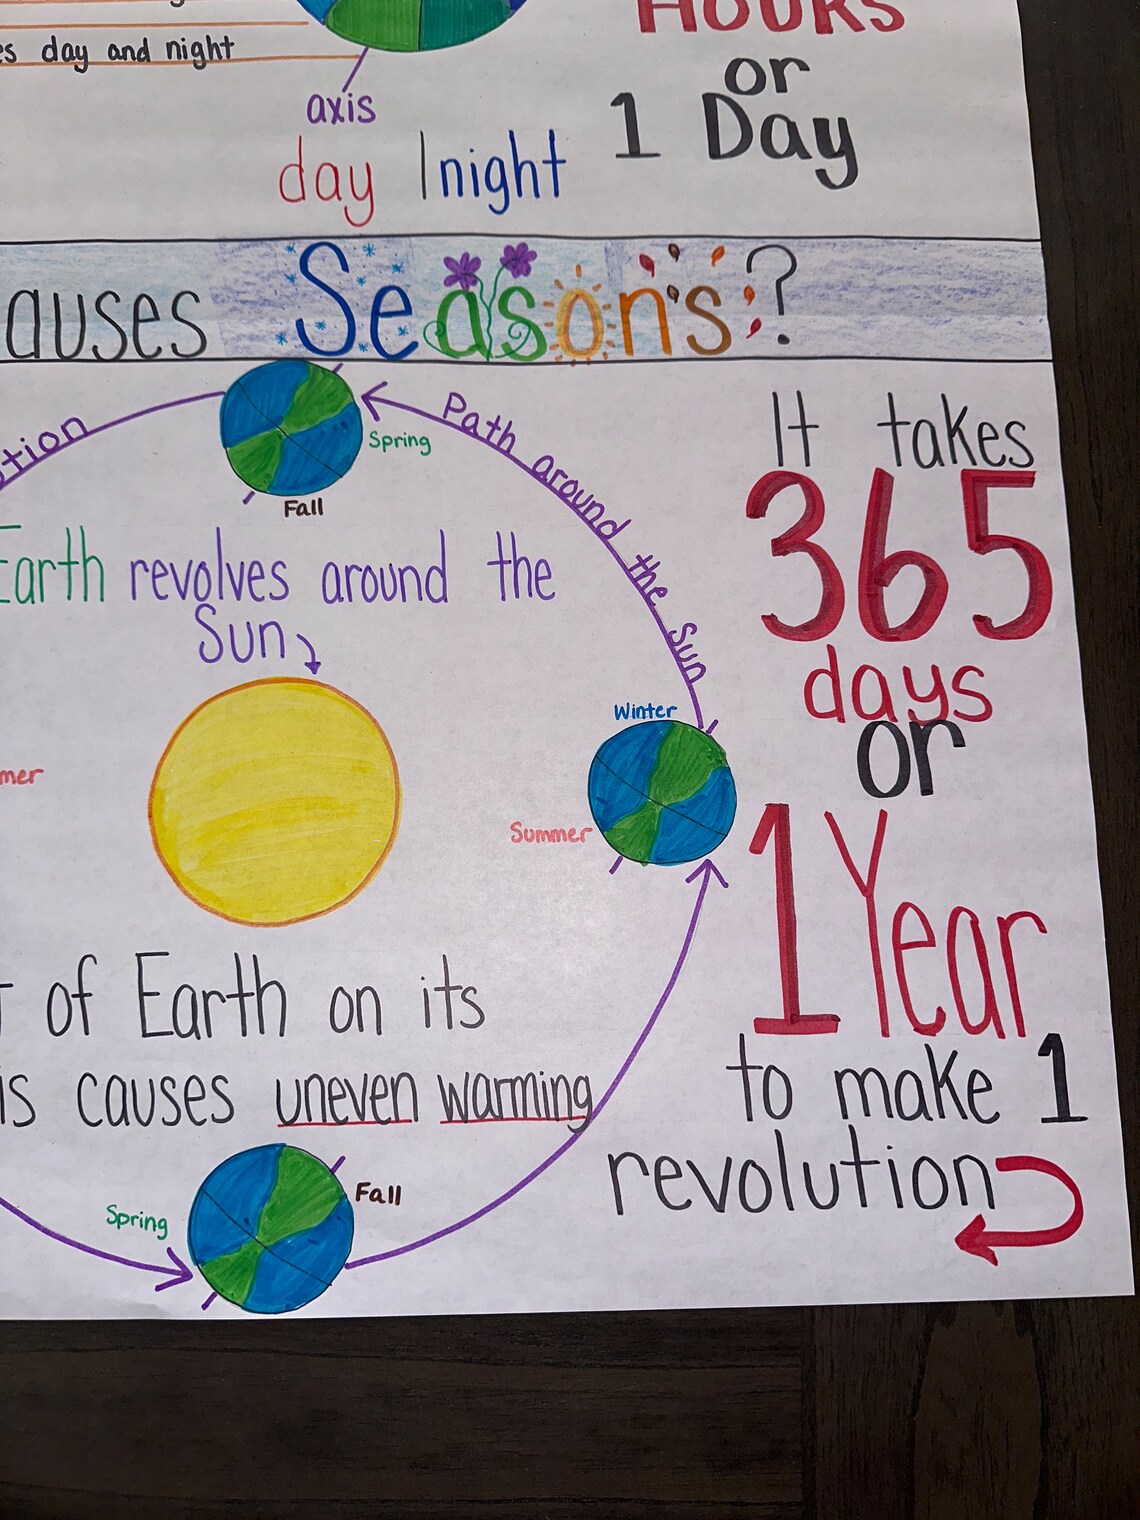 day and night
HOURS
or
1 Day
axis
day | night
auses Seasons?
Path around the Sun
Spring
Fall
Earth revolves around the
Sun
Winter
Summer
mer
of Earth on its
is causes uneven warming
Spring
Fall
It takes
365
days
or
1 Year
to make 1
revolution